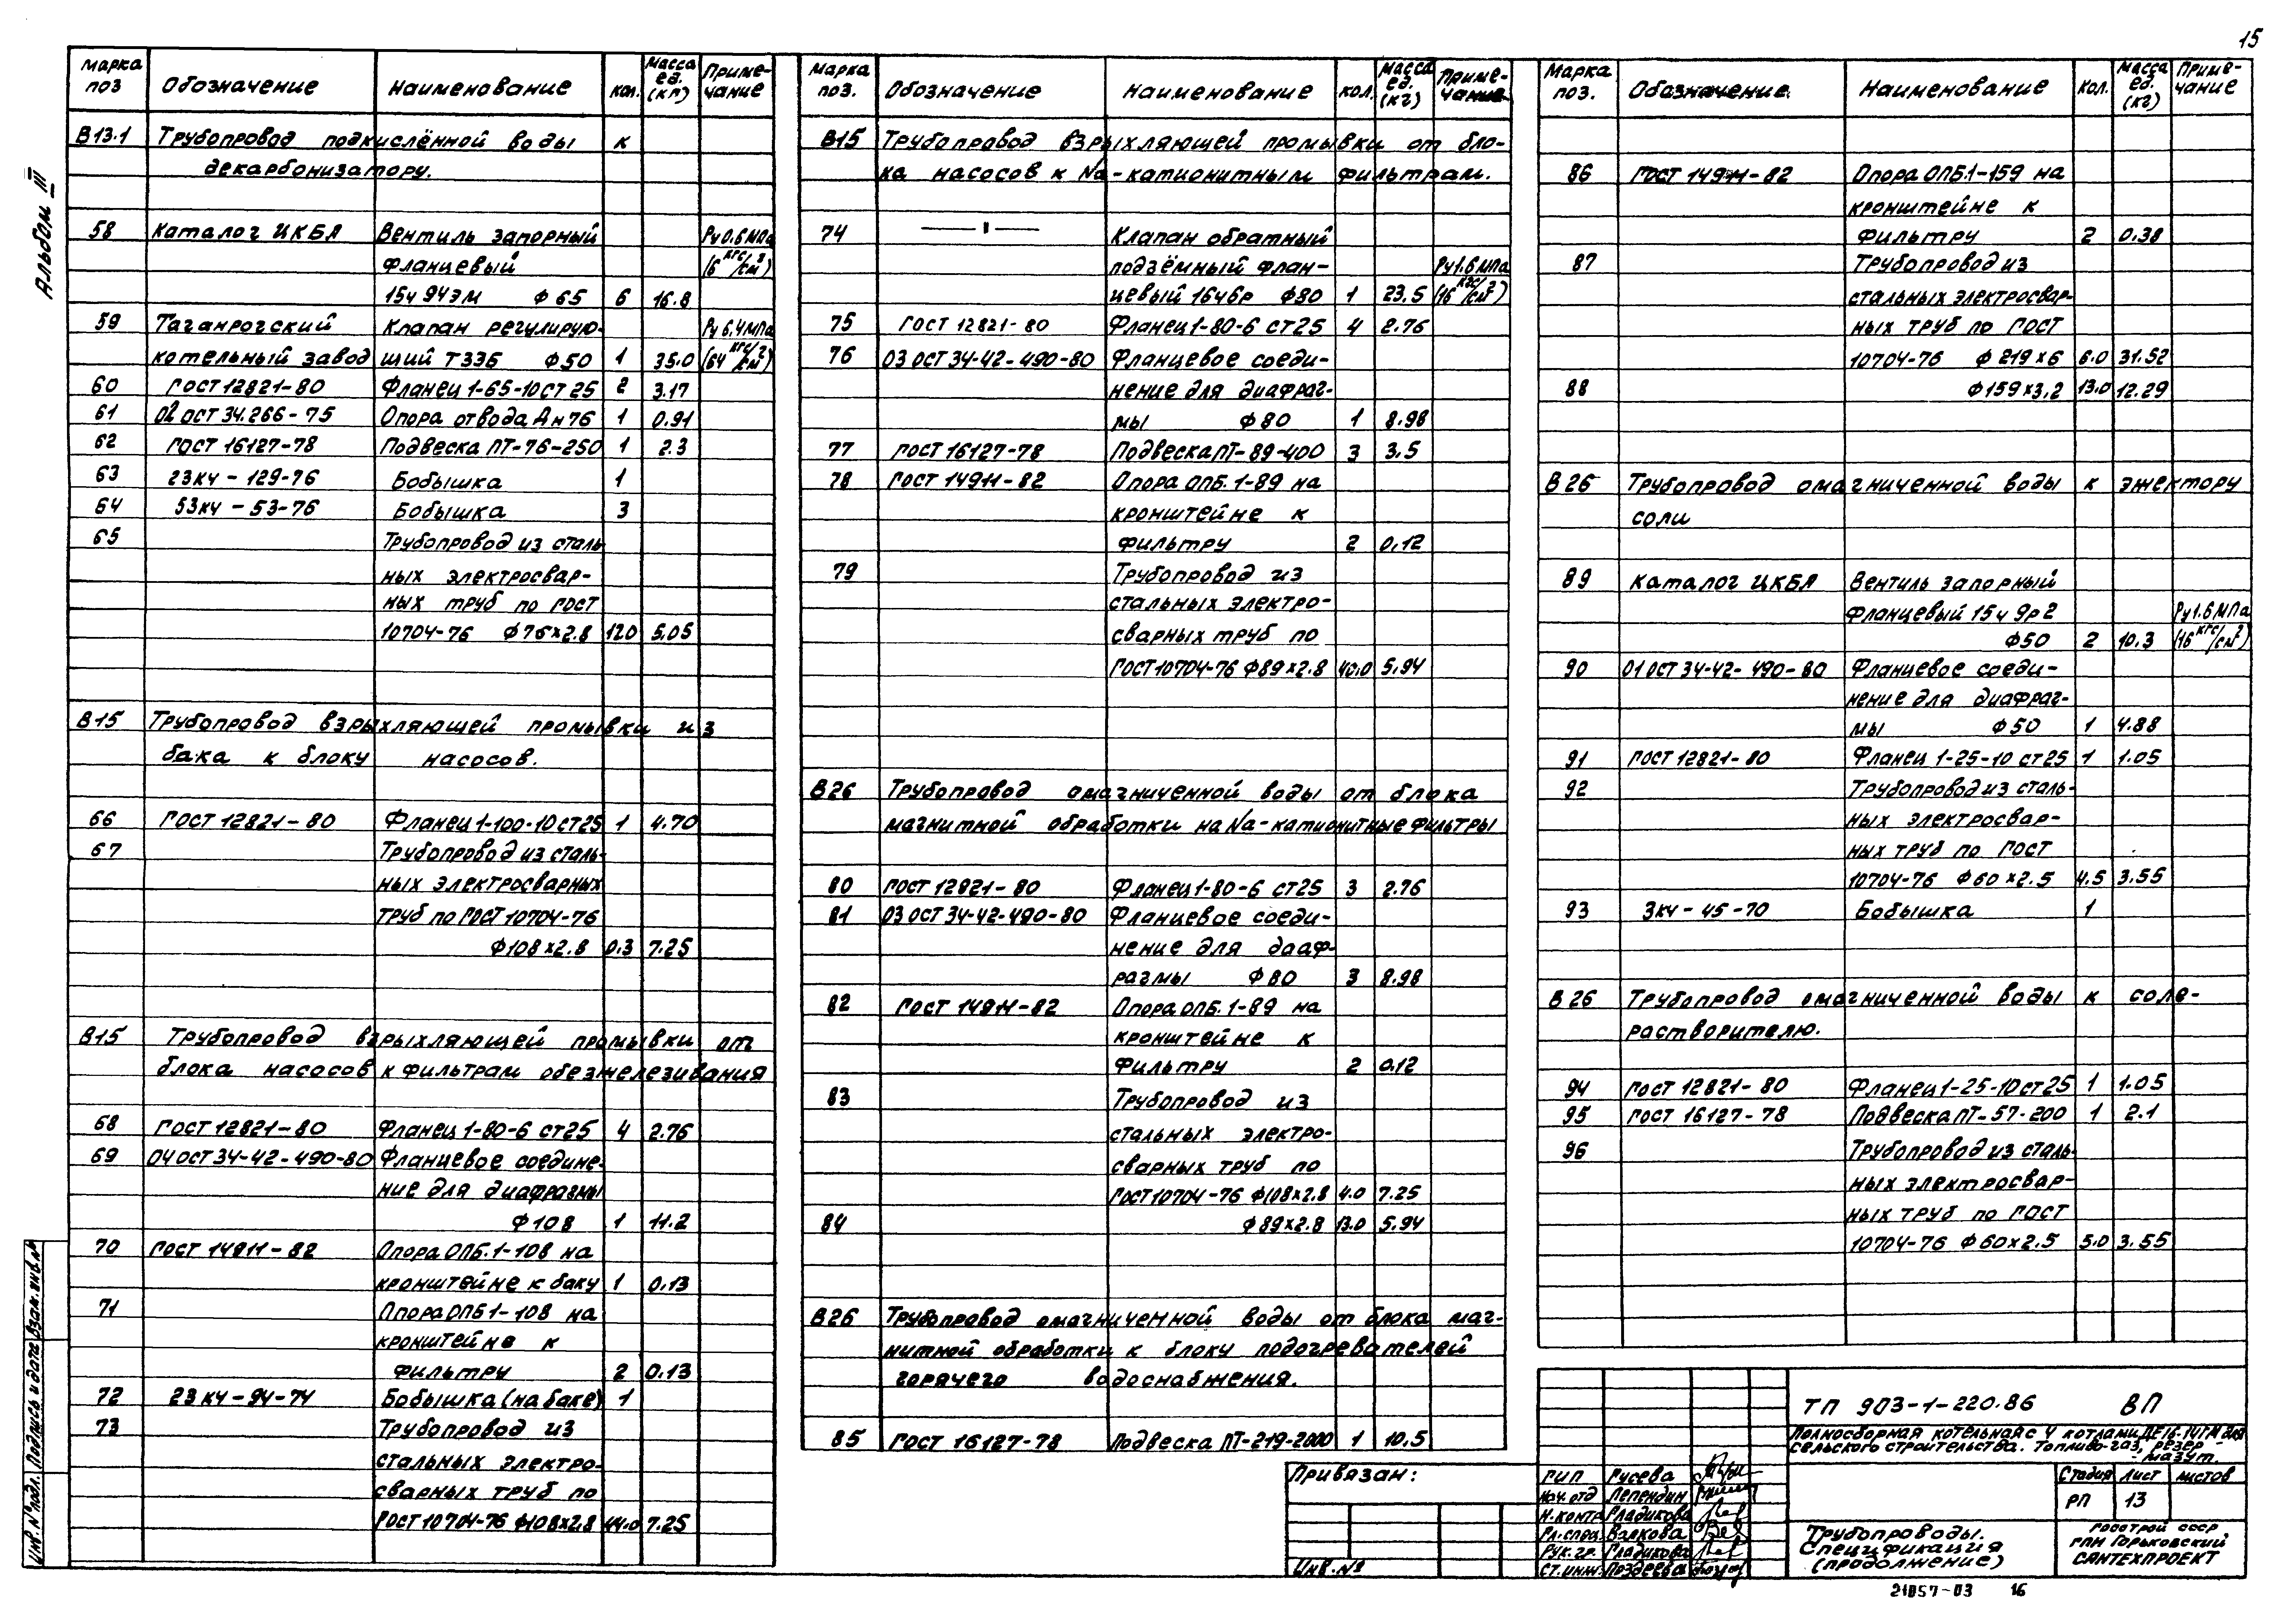 15
Альбом III
Марка поз | Обозначение | Наименование | Кол. | Масса ед. (кг) | Примечание
В13.1 Трубопровод подкислённой воды к
декарбонизатору.
58 Каталог ЦКБА Вентиль запорный Ру 0.6 МПа
фланцевый (6 кгс/см²)
15ч 94эм ф 65 6 16.8
59 Таганрогский Клапан регулирую- Ру 6.4 МПа
котельный завод щий Т33б ф50 1 35.0 (64 кгс/см²)
60 ГОСТ 12821-80 Фланец 1-65-10 ст 25 2 3.17
61 02 ОСТ 34.266-75 Опора отвода Дн 76 1 0.91
62 ГОСТ 16127-78 Подвеска ПТ-76-250 1 2.3
63 23кч-129-76 Бобышка 1
64 53кч-53-76 Бобышка 3
65 Трубопровод из сталь
ных электросвар-
ных труб по ГОСТ
10704-76 ф76×2.8 120 5.05
В15 Трубопровод взрыхляющей промывки из
бака к блоку насосов.
66 ГОСТ 12821-80 Фланец 1-100-10 ст25 1 4.70
67 Трубопровод из сталь-
ных электросварных
труб по ГОСТ 10704-76
ф108×2.8 0.3 7.25
В15 Трубопровод взрыхляющей промывки от
блока насосов к фильтрам обезжелезивания
68 ГОСТ 12821-80 Фланец 1-80-6 ст25 4 2.76
69 04 ОСТ 34-42-490-80 Фланцевое соедине-
ние для диафрагмы
ф108 1 11.2
70 ГОСТ 14911-82 Опора ОПБ.1-108 на
кронштейне к баку 1 0.13
71 Опора ОПБ1-108 на
кронштейне к
фильтру 2 0.13
72 23кч-94-74 Бобышка (на баке) 1
73 Трубопровод из
стальных электро-
сварных труб по
ГОСТ 10704-76 ф108×2.8 44.0 7.25
Марка поз. | Обозначение | Наименование | Кол. | Масса ед. (кг) | Примечание
В15 Трубопровод взрыхляющей промывки от бло-
ка насосов к Na-катионитным фильтрам.
74 —"— Клапан обратный
подъёмный флан- Ру 1.6 МПа
цевый 16ч6р ф80 1 23.5 (16 кгс/см²)
75 ГОСТ 12821-80 Фланец 1-80-6 ст25 4 2.76
76 03 ОСТ 34-42-490-80 Фланцевое соеди-
нение для диафраг-
мы ф80 1 8.98
77 ГОСТ 16127-78 Подвеска ПТ-89-400 3 3.5
78 ГОСТ 14911-82 Опора ОПБ.1-89 на
кронштейне к
фильтру 2 0.12
79 Трубопровод из
стальных электро-
сварных труб по
ГОСТ 10704-76 ф89×2.8 40.0 5.94
В26 Трубопровод омагниченной воды от блока
магнитной обработки на Na-катионитные фильтры
80 ГОСТ 12821-80 Фланец 1-80-6 ст25 3 2.76
81 03 ОСТ 34-42-490-80 Фланцевое соеди-
нение для дааф-
рагмы ф80 3 8.98
82 ГОСТ 14911-82 Опора ОПБ.1-89 на
кронштейне к
фильтру 2 0.12
83 Трубопровод из
стальных электро-
сварных труб по
ГОСТ 10704-76 ф108×2.8 4.0 7.25
84 ф89×2.8 13.0 5.94
В26 Трубопровод омагниченной воды от блока маг-
нитной обработки к блоку подогревателей
горячего водоснабжения.
85 ГОСТ 16127-78 Подвеска ПТ-219-2000 1 10.5
Марка поз. | Обозначение | Наименование | Кол. | Масса ед. (кг) | Примечание
86 ГОСТ 14911-82 Опора ОПБ.1-159 на
кронштейне к
фильтру 2 0.38
87 Трубопровод из
стальных электросвар-
ных труб по ГОСТ
10704-76 ф 219×6 6.0 31.52
88 ф159×3.2 13.0 12.29
В26 Трубопровод омагниченной воды к эжектору
соли
89 Каталог ЦКБА Вентиль запорный
фланцевый 15ч 9р2 Ру 1.6 МПа
ф50 2 10.3 (16 кгс/см²)
90 01 ОСТ 34-42-490-80 Фланцевое соеди-
нение для диафраг-
мы ф50 1 4.88
91 ГОСТ 12821-80 Фланец 1-25-10 ст25 1 1.05
92 Трубопровод из сталь-
ных электросвар-
ных труб по ГОСТ
10704-76 ф60×2.5 4.5 3.55
93 3кч-45-70 Бобышка 1
В26 Трубопровод омагниченной воды к соле-
растворителю.
94 ГОСТ 12821-80 Фланец 1-25-10 ст25 1 1.05
95 ГОСТ 16127-78 Подвеска ПТ-57-200 1 2.1
96 Трубопровод из сталь-
ных электросвар-
ных труб по ГОСТ
10704-76 ф60×2.5 5.0 3.55
ТП 903-1-220.86 ВП
Полносборная котельная с 4 котлами ДЕ16-14ГМ для
сельского строительства. Топливо-газ, резер-
- мазут.
Стадия Лист Листов
РП 13
Трубопроводы.
Спецификация
(продолжение)
Госстрой СССР
ГПИ Горьковский
САНТЕХПРОЕКТ
Привязан:
Инв. №
ГИП Гусева
Нач. отд Лепендин
Н.контр Гладикова
Гл.спец. Волкова
Рук. гр. Гладикова
Ст. инж. Поздеева
Инв. № подл. Подпись и дата Взам. инв. №
21057-03 16